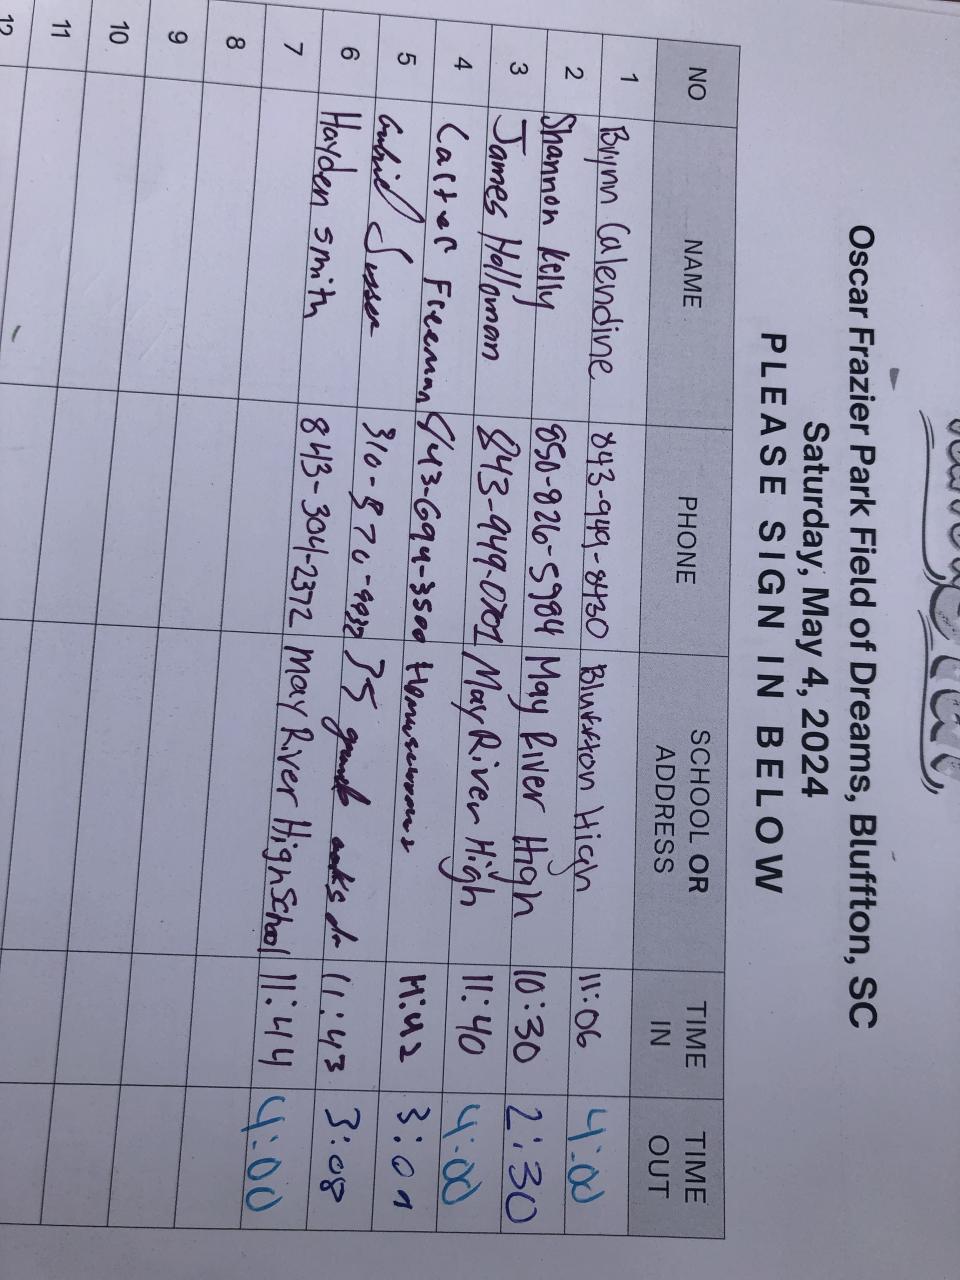 Oscar Frazier Park Field of Dreams, Bluffton, SC
Saturday, May 4, 2024
PLEASE SIGN IN BELOW
NO NAME PHONE SCHOOL OR ADDRESS TIME IN TIME OUT
1 Brynn Calendine 843-949-8430 Bluffton High 11:06 4:00
2 Shannon Kelly 850-826-5984 May River High 10:30 2:30
3 James Holloman 843-949-0701 May River High 11:40 4:00
4 Carter Freeman 843-694-3500 11:42 3:01
5 Gabriel 35 oaks dr 11:43 3:08
6 Hayden smith 843-304-2372 May River High School 11:44 4:00
7
8
9
10
11
12